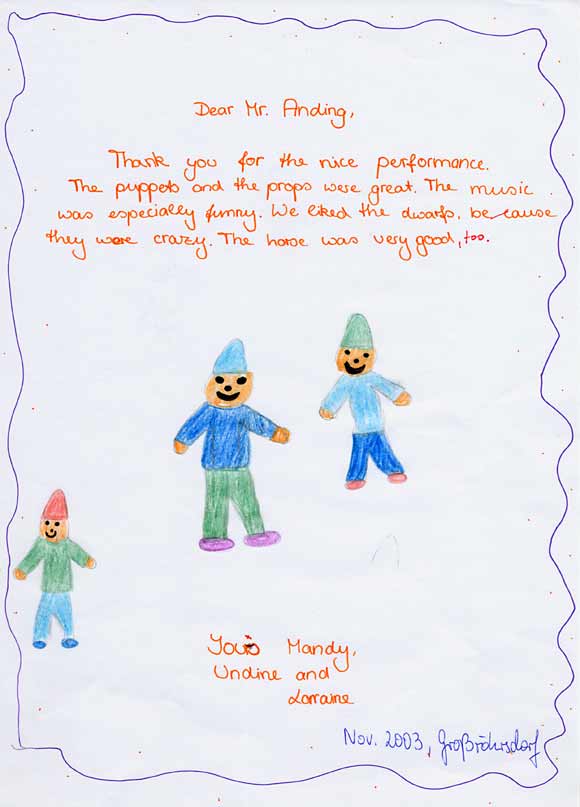 Dear Mr. Anding,
Thank you for the nice performance.
The puppets and the props were great. The music
was especially funny. We liked the dwarfs, because
they were crazy. The horse was very good, too.
Yours Mandy,
Undine and
Lorraine
Nov. 2003, Großröhrsdorf